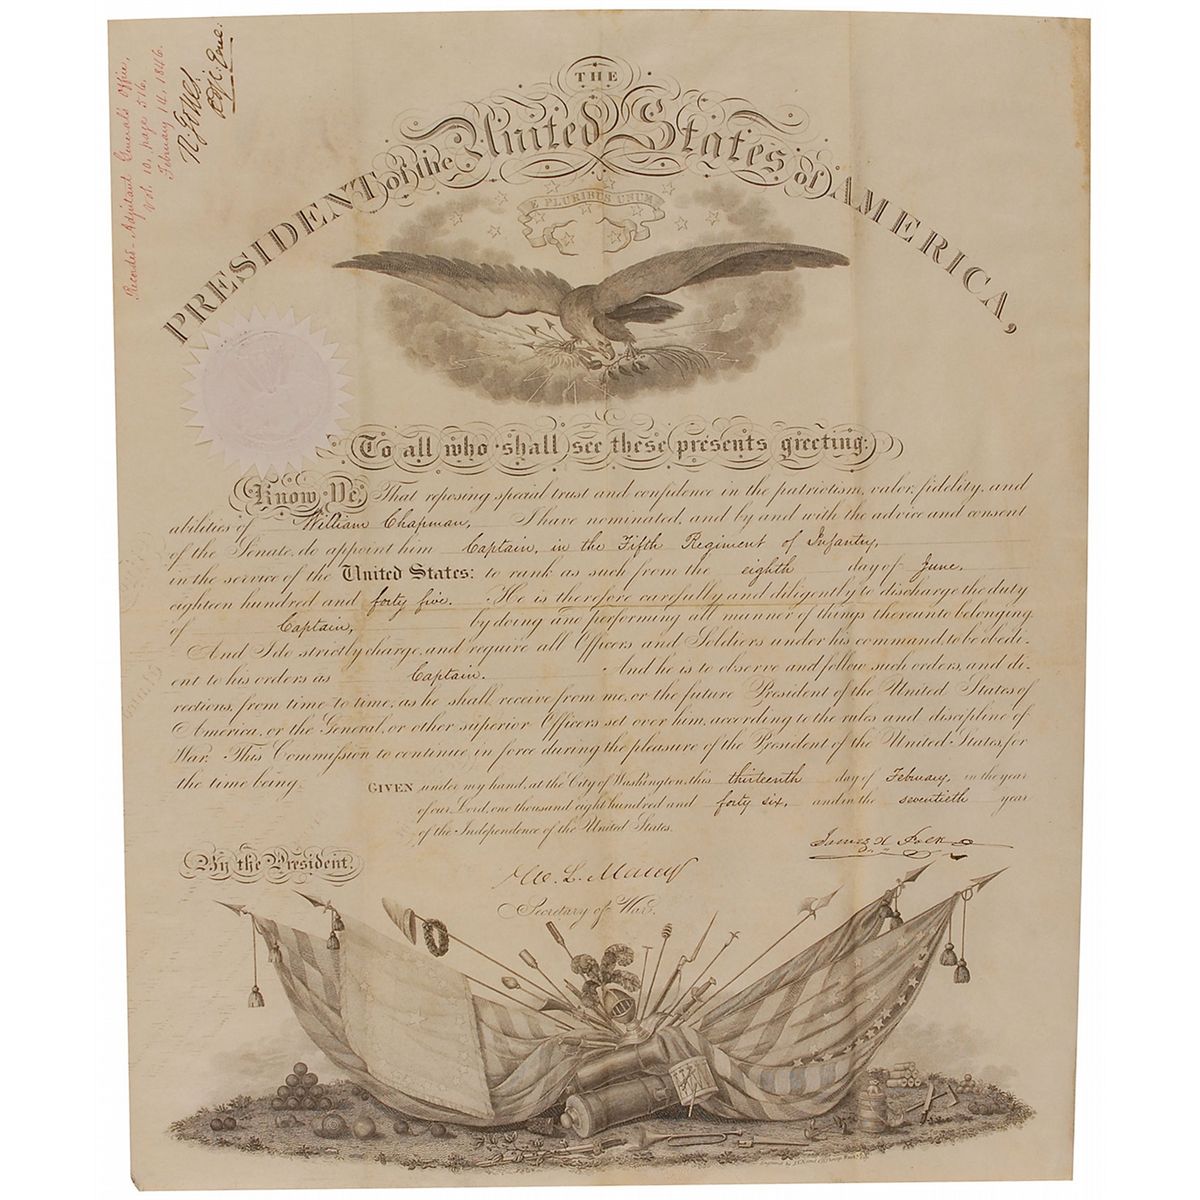 Records - Adjutant General's Office,
Vol. 10, page 516.
February 14, 1846.
R. Jones
Adjt. Genl.
THE
United States
PRESIDENT of the of AMERICA,
E PLURIBUS UNUM
To all who shall see these presents greeting:
Know Ye, That reposing special trust and confidence in the patriotism, valor, fidelity, and
abilities of William Chapman, I have nominated, and by and with the advice and consent
of the Senate, do appoint him Captain, in the Fifth Regiment of Infantry,
in the service of the United States: to rank as such from the eighth day of June,
eighteen hundred and forty five. He is therefore carefully and diligently to discharge the duty
of Captain, by doing and performing all manner of things thereunto belonging.
And I do strictly charge, and require all Officers and Soldiers under his command to be obedi-
ent to his orders as Captain. And he is to observe and follow such orders, and di-
rections, from time to time, as he shall receive from me, or the future President of the United States of
America, or the General, or other superior Officers set over him, according to the rules and discipline of
War. This Commission to continue in force during the pleasure of the President of the United States, for
the time being.
GIVEN under my hand, at the City of Washington, this thirteenth day of February, in the year
of our Lord, one thousand eight hundred and forty six, and in the seventieth year
of the Independence of the United States.
James K Polk
By the President.
W. L. Marcy
Secretary of War.
Engraved by